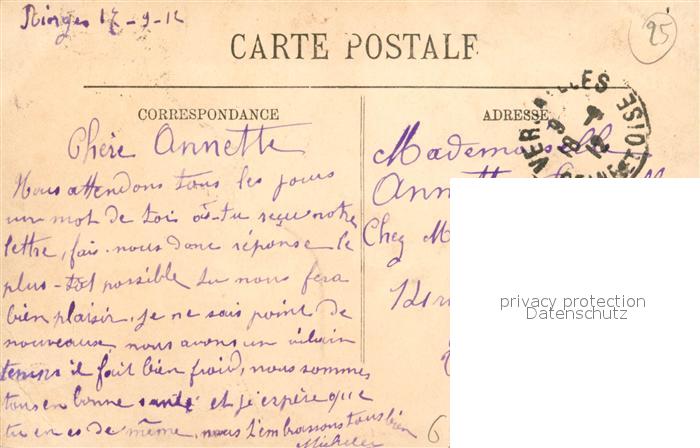 17-9-12
25
CARTE POSTALE
CORRESPONDANCE
ADRESSE
VERSAILLES
Chère Annette
Nous attendons tous les jours
un mot de toi as-tu reçu notre
lettre, fais-nous donc réponse le
plus-tôt possible tu nous fera
bien plaisir, je ne sais point de
nouveaux, nous avons un vilain
temps il fait bien froid, nous sommes
tous en bonne santé et j'espère que
tu en es de même, nous t'embrassons tous bien
Mademoiselle
Annette
Chez M
privacy protection
Datenschutz
6